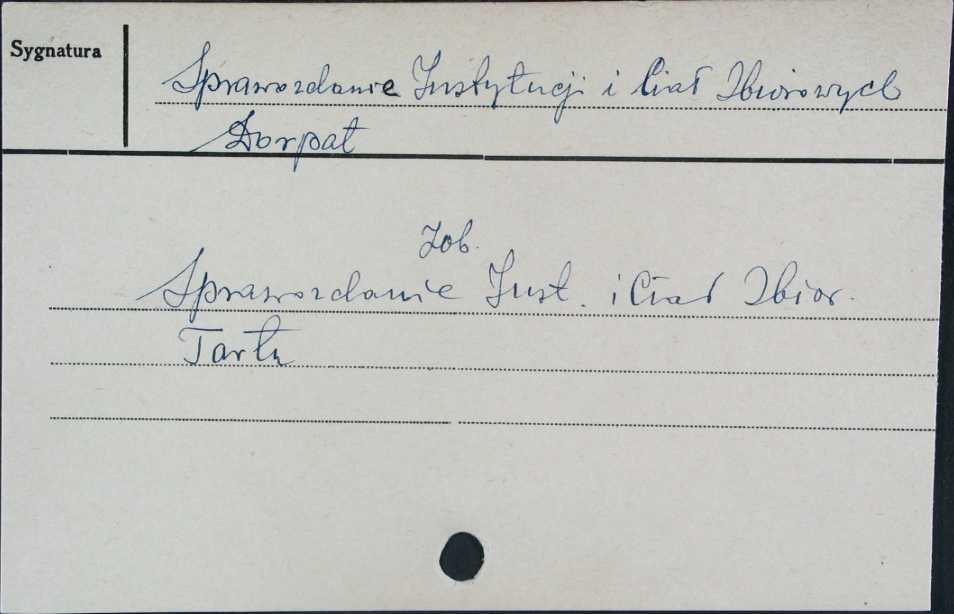 Sygnatura
Sprawozdanie Instytucji i Ciał Zbiorowych
Dorpat
Zob.
Sprawozdanie Inst. i Ciał Zbior.
Tartu